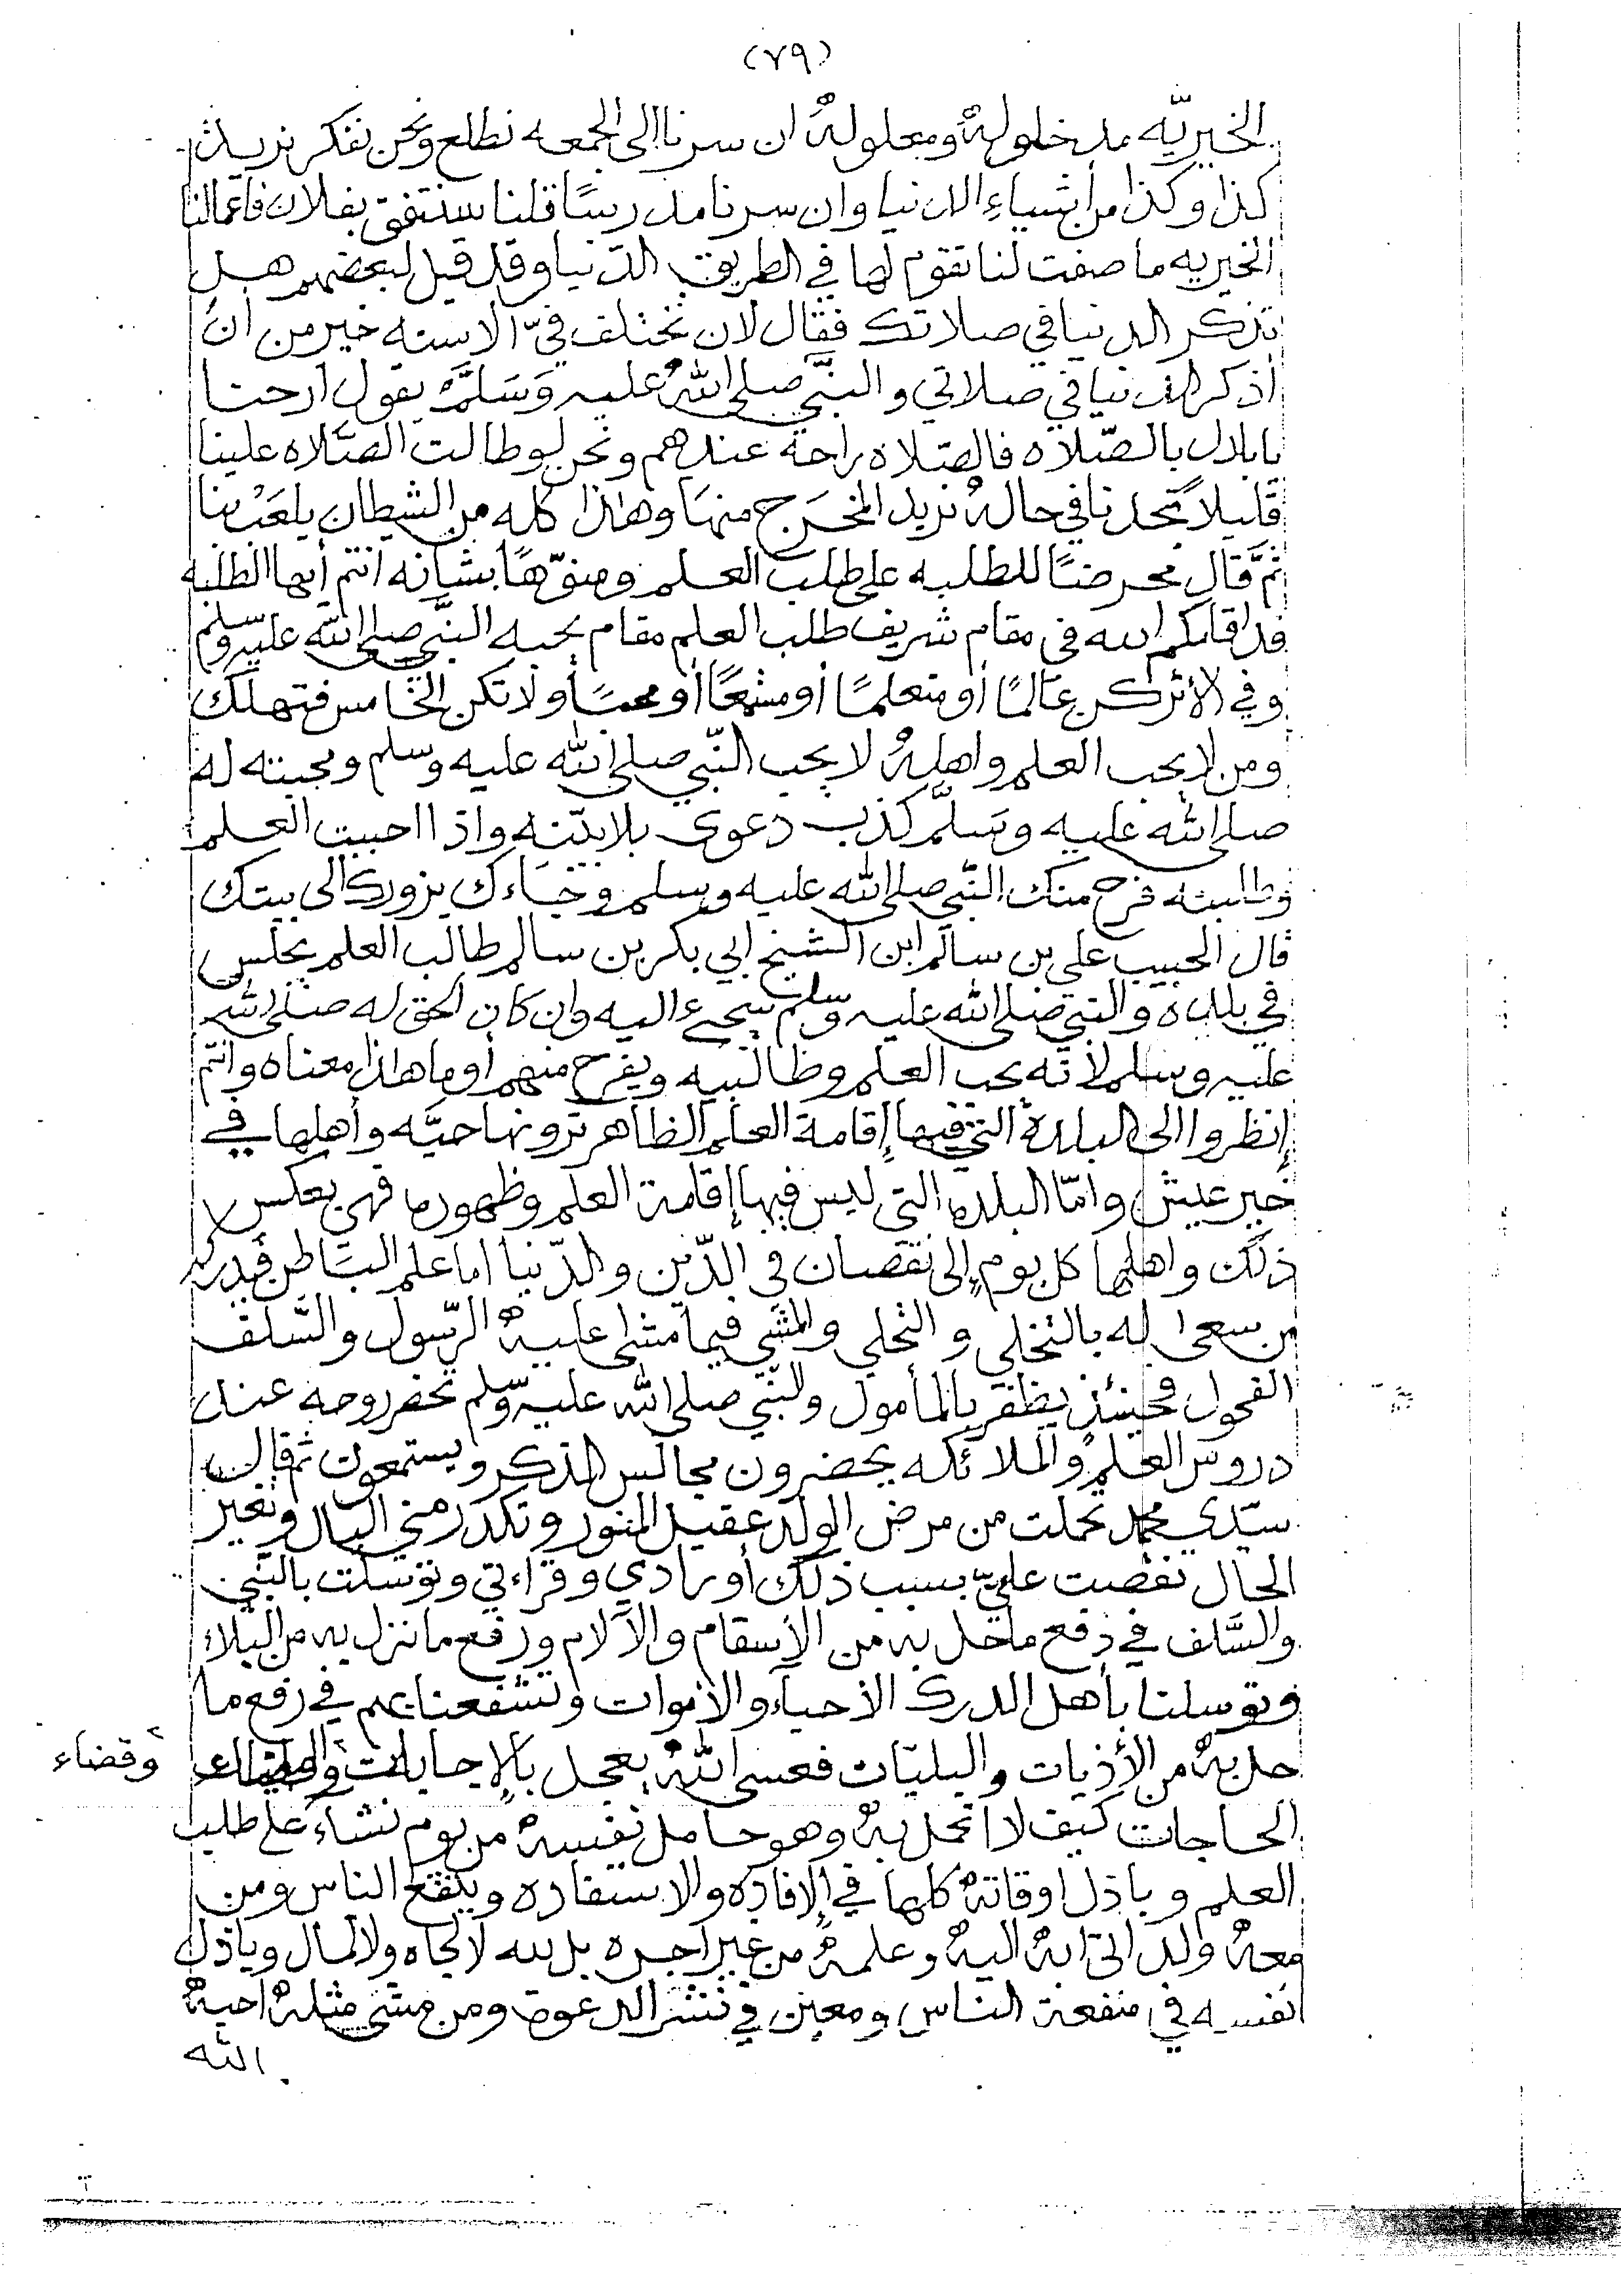 (٧٩)
الخيريّه مدخولهْ ومعلولهْ ان سرنا الى الجمعه نطلع ونحن نفكر نريد
كذا وكذا من أشياءِ الدنيا وان سرنا مدرسًا قلنا سنتفق بفلان فأعمالنا
الخيريه ما صفت لنا تقوم لها في الطريق الدنيا وقد قيل لبعضهم هل
تذكر الدنيا في صلاتك فقال لان تختلف فيّ الاسنه خير من أن
أذكر الدنيا في صلاتي والنبَّي صلى اللهُ عليه وَسَلَّمَ يقول أرحنا
يا بلال بالصّلاه فالصّلاه راحة عندهم ونحن لو طالت الصَّلاه علينا
قليلاً تجدنا في حالهْ نريد المخرَج منهَا وهاذا كله من الشيطان يلعَبْ بنا
ثمَّ قال محرضًا للطلبه على طلب العلم ومنوّهًا بشانه انتم أيها الطلبه
قد اقامكم الله في مقام شريف طلب العلم مقام يحبه النبَّي صلى الله عليه وسلم
وفي الأثر كن عالمًا أو متعلمًا أو مستمعًا أو محبًا ولا تكن الخامس فتهلك
ومن لا يحب العلم واهلهْ لا يحب النبّي صلى الله عليه وسلم ومحبته له
صلى الله عليه وسَلَّم كذب دعوى بلا بيّنه واذا احببت العلم
وطلبته فرح منك النبّي صلى الله عليه وسلم وجَاءك يزورك الى بيتك
قال الحبيب علي بن سالم ابن الشيخ ابي بكر بن سالم طالب العلم يجلس
في بلاده والنبّي صلى الله عليه وسلم يجيء اليه وان كان الحق له صلى الله
عليه وسلم لأنّه يحب العلم وطالبيه ويفرح منهم أو ما هاذا معناه وانتم
إنظروا الى البلدة التي فيها إقامة العلم الظاهر ترونها حيَّه وأهلها في
خير عيش وامّا البلده التي ليس فيها إقامة العلم وظهوره فهي بعكس
ذلك واهلها كل يوم إلى نقصان في الدّين والدّنيا اما علم البَاطن فيدركه
من سعى له بالتخلي والتحلي والمشي فيما مشى عليهْ الرّسول والسّلف
الفحول فحينئذٍ يظفر بالمأمول والنبّي صلى الله عليه وسلم تحضر روحه عند
دروس العلم والملائكه يحضرون مجالس الذكر ويستمعون ثم قال
سيّدي محمد تحملت من مرض الولد عقيل المنور وتكدر مني البال وتغير
الحال نقصت عليّ بسبب ذلك أورادي وقراءتي وتوسلت بالنّبي
والسَّلف في دفع ما حل به من الأسقام والآلام ورفع ما نزل به من البلاء
وتوسلنا بأهل الدرك الأحياء والأموات وتشفعنا بهم في رفع ما
حل بهْ من الأذيات والبليّات فعسى اللهْ يعجل بالإجابات وقضاء
الحاجات كيف لا اتحمل بهْ وهو حامل نفسهْ من يوم نشاء على طلب
العلم وباذل اوقاتهْ كلها في الإفاده والاستفاده وينفع الناس ومن
معهْ ولد اتى ابهْ اليهْ وعلمهْ من غير اجره بل لله لا لجاه ولا لمال وباذل
نفسه في منفعة الناس ومعين في نشر الدعوة ومن مشى مثلهْ احبهْ
الله